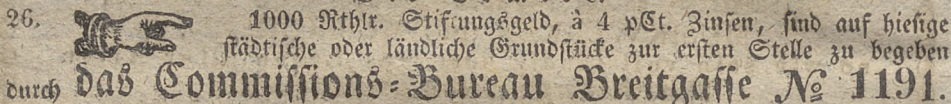 26. 1000 Rthlr. Stiftungsgeld, à 4 pCt. Zinsen, sind auf hiesige
städtische oder ländliche Grundstücke zur ersten Stelle zu begeben
durch das Commissions-Bureau Breitgasse № 1191.